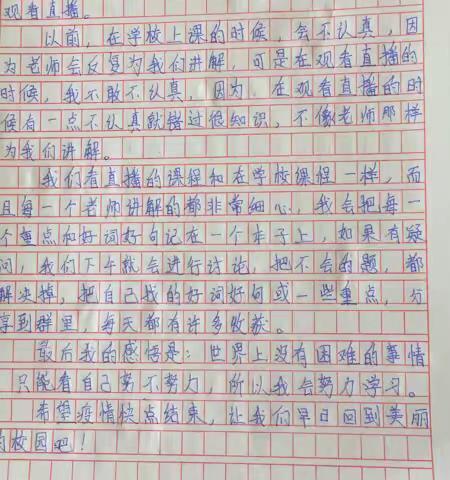 观看直播。
以前，在学校上课的时候，会不认真，因
为老师会反复为我们讲解，可是在观看直播的
时候，我不敢不认真，因为，在观看直播的时
候有一点不认真就错过很知识，不像老师那样
为我们讲解。
我们看直播的课程和在学校课程一样，而
且每一个老师讲解的都非常细心，我会把每一
个重点和好词好句记在一个本子上，如果有疑
问，我们下午就会进行讨论，把不会的题，都
解决掉，把自己找的好词好句或一些重点，分
享到群里，每天都有许多收获。
最后我的感悟是：世界上没有困难的事情
只能看自己努不努力，所以我会努力学习。
希望疫情快点结束，让我们早日回到美丽
的校园吧！